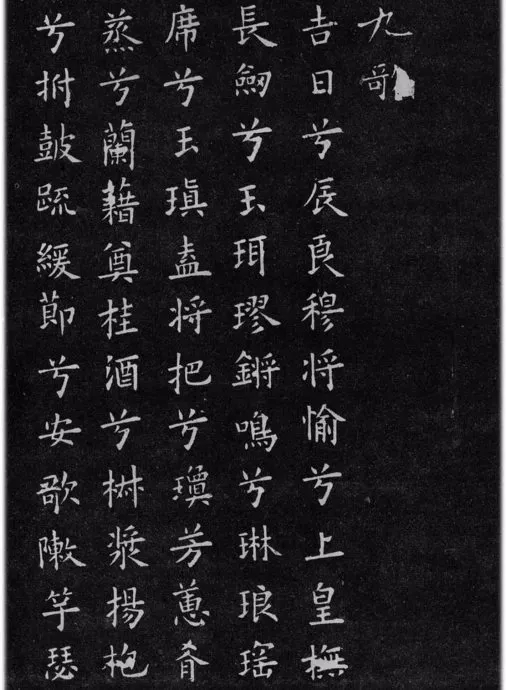 九歌
吉日兮辰良穆將愉兮上皇撫
長劒兮玉珥璆鏘鳴兮琳琅瑤
席兮玉瑱盍將把兮瓊芳蕙肴
蒸兮蘭藉奠桂酒兮椒漿揚枹
兮拊鼓疏緩節兮安歌陳竽瑟